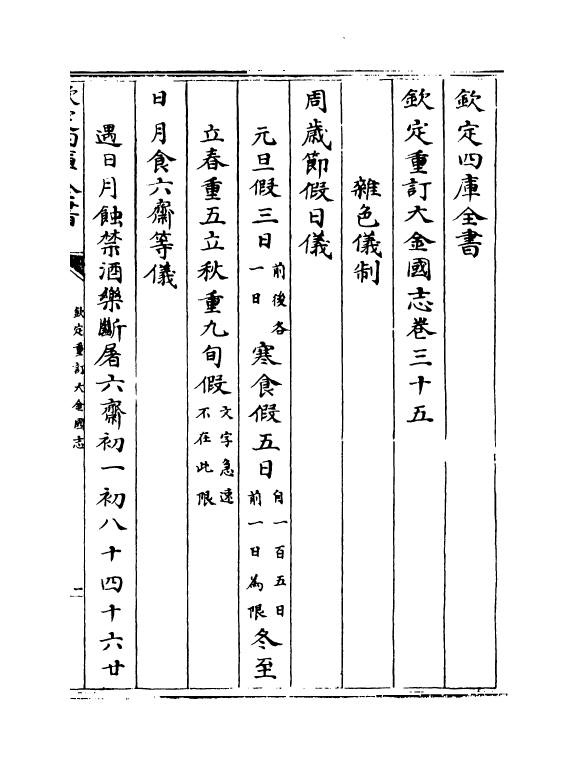 欽定四庫全書
欽定重訂大金國志卷三十五
雜色儀制
周歲節假日儀
元旦假三日前後各一日寒食假五日自一百五日前一日為限冬至
立春重五立秋重九旬假文字急速不在此限
日月食六齋等儀
遇日月蝕禁酒樂斷屠六齋初一初八十四十六廿
欽定四庫全書
欽定重訂大金國志
二